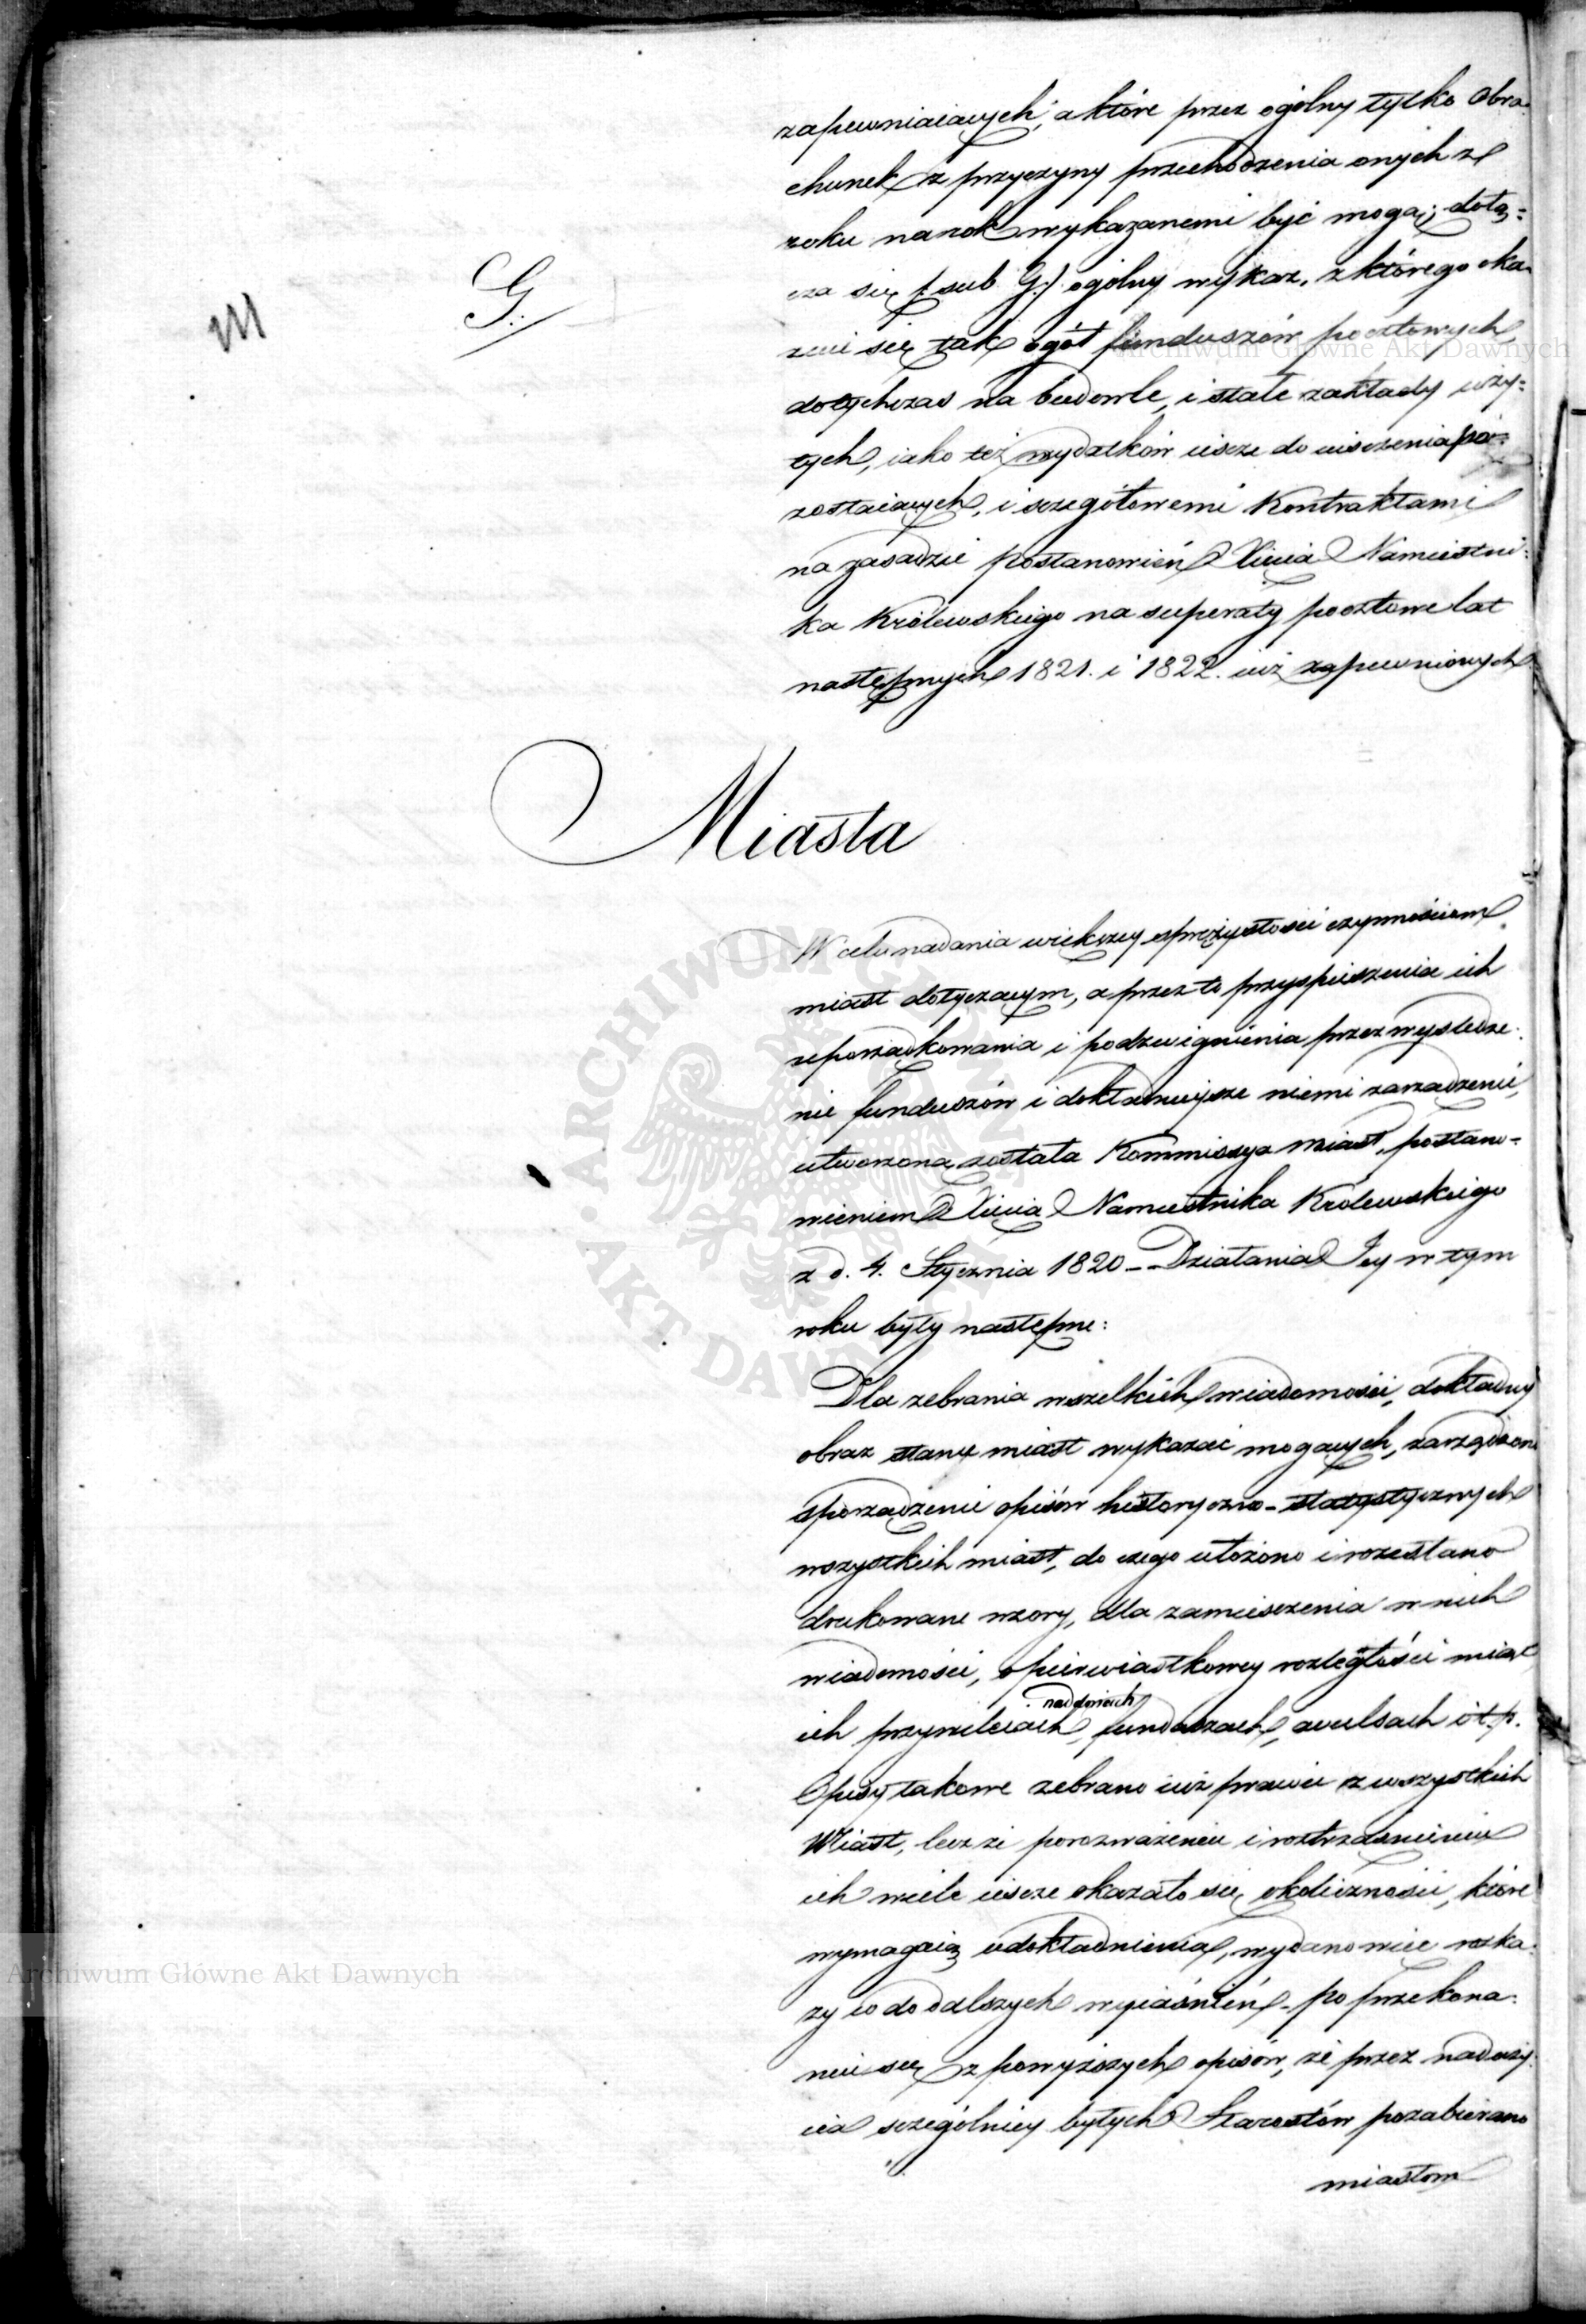 zapewniaiących; a które przez ogólny tylko obra-
chunek z przyczyny przechodzenia onych z
roku na rok wykazanemi być mogą; dołą=
cza się (: sub G:) ogólny wykaz, z którego oka-
zuie się tak ogół funduszów pocztowych,
dotychczas na budowle, i stałe zakłady uży=
tych, iako też wydatków ieszcze do uiszczenia po=
zostaiących, i szczegółowemi Kontraktami
na zasadzie postanowień Xięcia Namiestni=
ka Królewskiego na superaty pocztowe lat
następnych 1821. i 1822. iuż zapewnionych
G:
Miasta
W celu nadania większey sprężystości czynnościom
miast dotyczącym, a przez to przyspieszenia ich
uporządkowania i podzwignienia przez wyśledze-
nie funduszów i dokładnieysze niemi zarządzenie,
utworzoną została Kommissya Miast, postano=
wieniem Xięcia Namiestnika Królewskiego
z d. 4. Stycznia 1820 -- Działania Jey w tym
roku były następne:
Dla zebrania wszelkich wiadomości, dokładny
obraz stanu miast wykazać mogących, zarządzono
sporządzenie opisów historyczno-statystycznych
wszystkich miast, do czego ułożono i rozesłano
drukowane wzory, dla zamieszczenia w nich
wiadomości, o pierwiastkowey rozległości miast
nadaniach
ich przywileiach, funduszach, avulsach i t. p.
Opisy takowe zebrano iuż prawie z wszystkich
Miast, lecz że po rozważeniu i roztrząśnieniu
ich wiele ieszcze okazało się okoliczności, które
wymagaią udokładnienia, wydano więc rozka-
zy co do dalszych wyiaśnień - po przekona-
niu się z powyższych opisów, że przez naduży-
cia szczególniey byłych Starostów pozabierano
miastom
Archiwum Główne Akt Dawnych
Archiwum Główne Akt Dawnych
ARCHIWUM GŁÓWNE AKT DAWNYCH